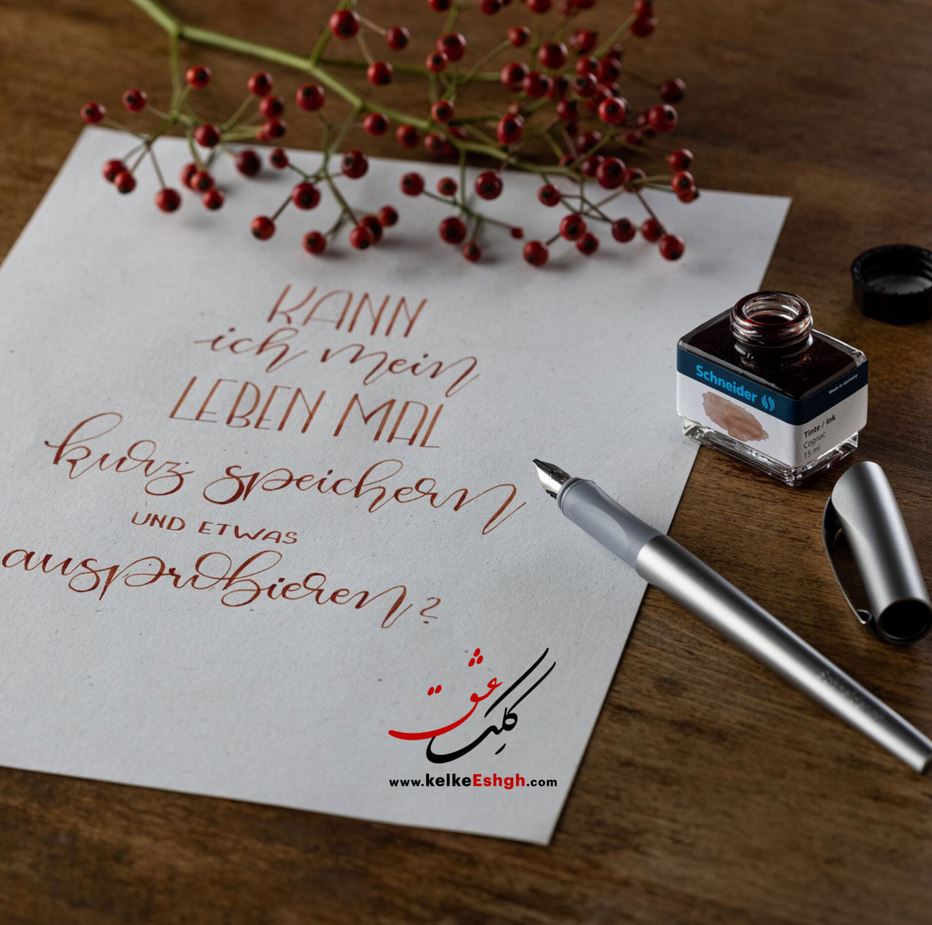 KANN
ich mein
LEBEN MAL
kurz speichern
UND ETWAS
ausprobieren?
Schneider
Made in Germany
Tinte / Ink
Cognac
15 ml
کلک عشق
www.kelkeEshgh.com